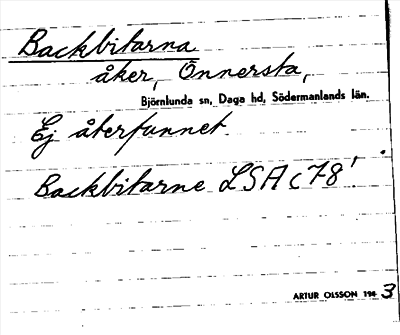 Backbitarna
åker, Önnersta,
Björnlunda sn, Daga hd, Södermanlands län.
Ej återfunnet.
Backbitarne LSA c 78!
ARTUR OLSSON 194 3